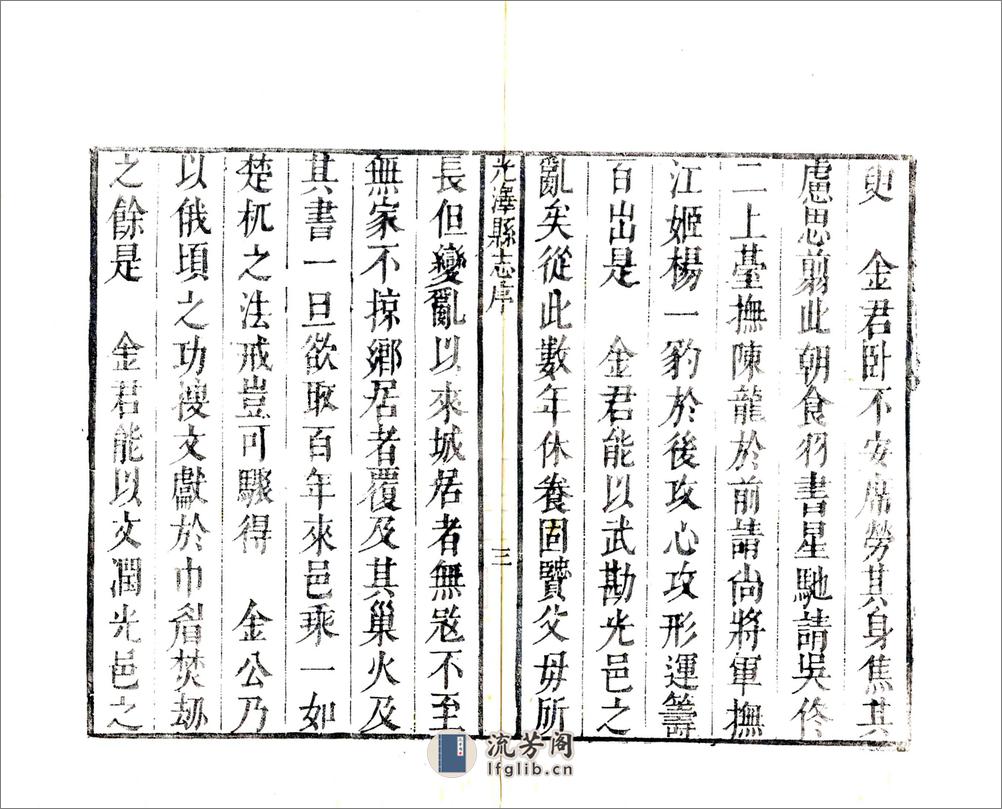 臾　金君卧不安席勞其身焦其
慮思翦此朝食羽書星馳請吳佟
二上臺撫陳龍於前請尙將軍撫
江姬楊一豹於後攻心攻形運籌
百出是　金君能以武勘光邑之
亂矣從此數年休養固賢父母所
光澤縣志序
三
長但變亂以來城居者無寇不至
無家不掠鄉居者覆及其巢火及
其書一旦欲取百年來邑乘一如
楚杌之法戒豈可驟得　金公乃
以俄頃之功搜文獻於巾箱焚劫
之餘是　金君能以文潤光邑之
流芳阁
lfglib.cn